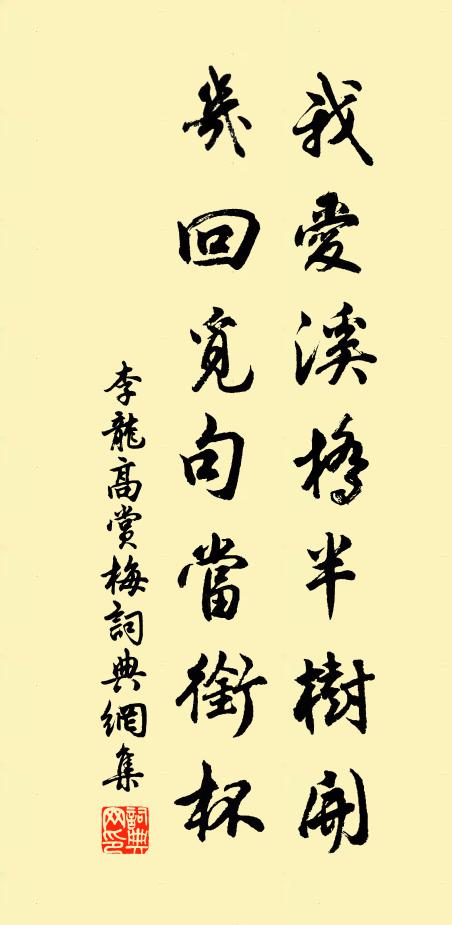 我愛溪橋半樹開
幾回覓句當銜杯
李龍高賞梅詞典網集
詞典网印